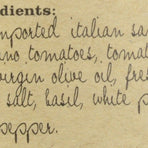 dients:
mported italian sa
no tomatoes, tomat
virgin olive oil, fres
salt, basil, white p
pepper.